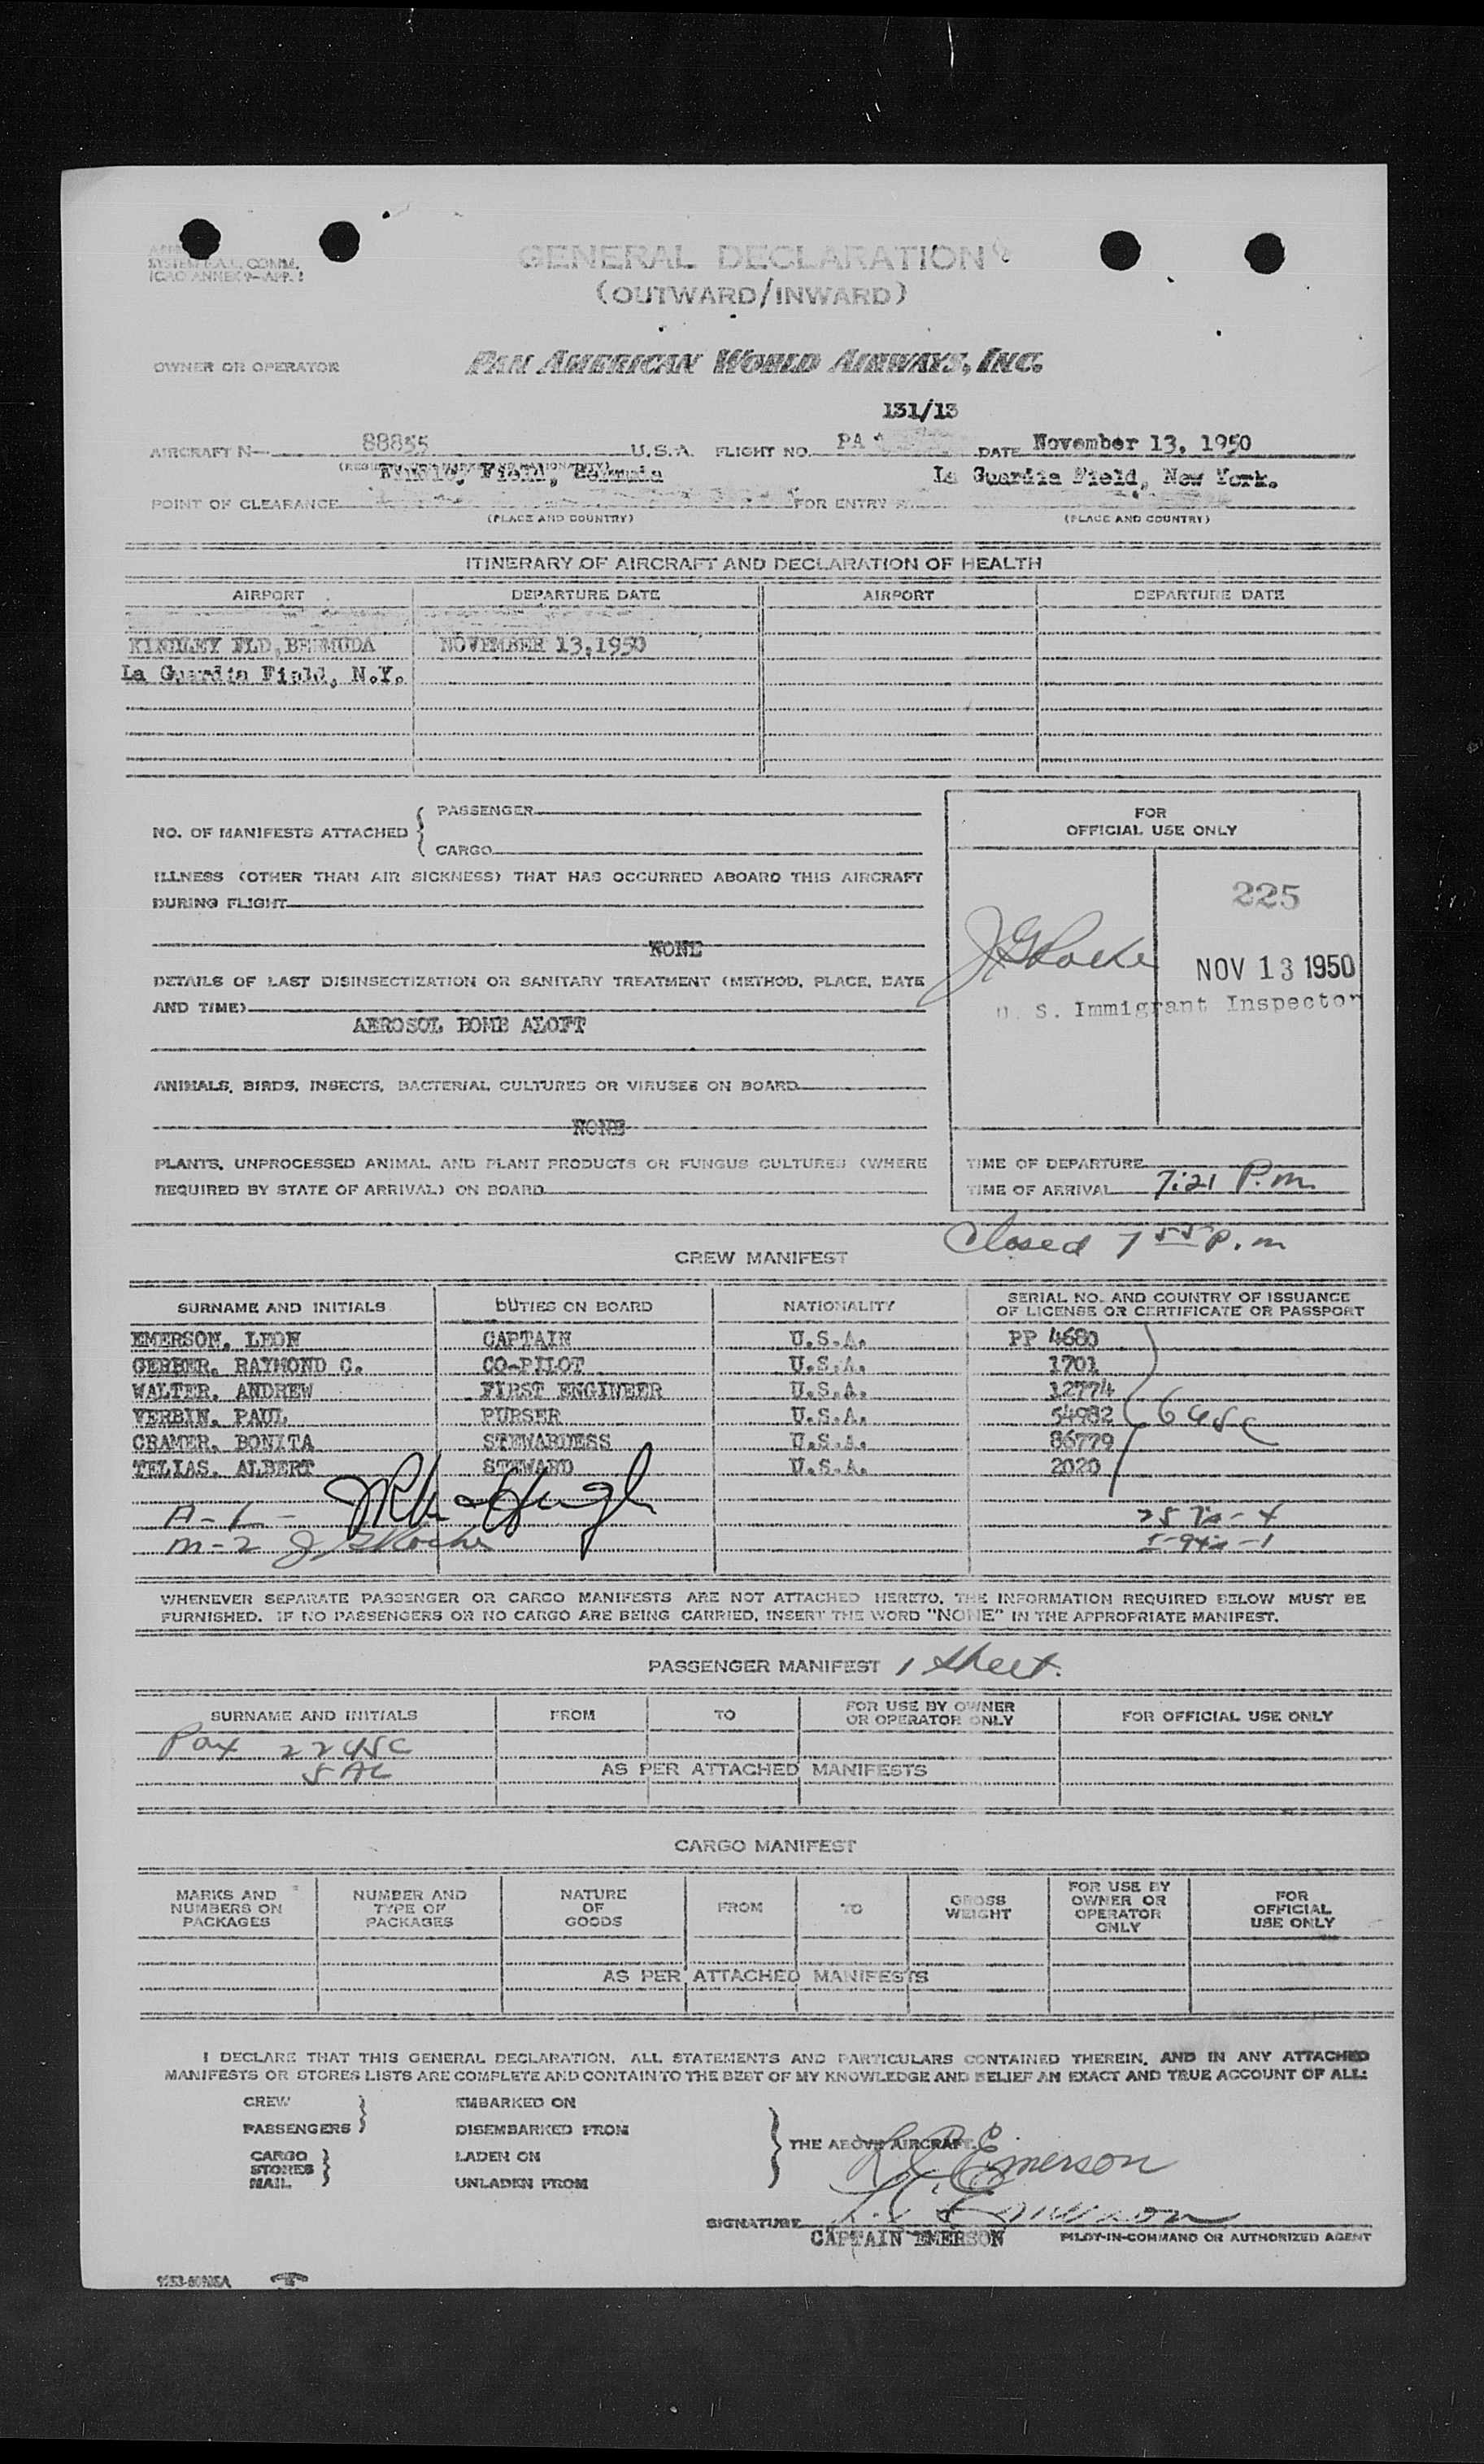 SYSTEM F.A.L. COMM.
ICAO ANNEX 9-APP. 1
GENERAL DECLARATION
(OUTWARD/INWARD)
OWNER OR OPERATOR PAN AMERICAN WORLD AIRWAYS, INC.
131/13
AIRCRAFT N- 88855 U.S.A. FLIGHT NO. PA DATE November 13, 1950
Field, Bermuda La Guardia Field, New York.
POINT OF CLEARANCE FOR ENTRY
(PLACE AND COUNTRY) (PLACE AND COUNTRY)
ITINERARY OF AIRCRAFT AND DECLARATION OF HEALTH
AIRPORT DEPARTURE DATE AIRPORT DEPARTURE DATE
KINDLEY FLD, BERMUDA NOVEMBER 13, 1950
La Guardia Field, N.Y.
NO. OF MANIFESTS ATTACHED { PASSENGER
CARGO
ILLNESS (OTHER THAN AIR SICKNESS) THAT HAS OCCURRED ABOARD THIS AIRCRAFT
DURING FLIGHT
NONE
DETAILS OF LAST DISINSECTIZATION OR SANITARY TREATMENT (METHOD, PLACE, DATE
AND TIME)
AEROSOL BOMB ALOFT
ANIMALS, BIRDS, INSECTS, BACTERIAL CULTURES OR VIRUSES ON BOARD
NONE
PLANTS, UNPROCESSED ANIMAL AND PLANT PRODUCTS OR FUNGUS CULTURES (WHERE
REQUIRED BY STATE OF ARRIVAL) ON BOARD
FOR
OFFICIAL USE ONLY
225
J G Roche
NOV 13 1950
U. S. Immigrant Inspector
TIME OF DEPARTURE
TIME OF ARRIVAL 7:21 P.m.
Closed 7 55 p.m
CREW MANIFEST
SURNAME AND INITIALS DUTIES ON BOARD NATIONALITY SERIAL NO. AND COUNTRY OF ISSUANCE
OF LICENSE OR CERTIFICATE OR PASSPORT
EMERSON, LEON CAPTAIN U.S.A. PP 4680
GERBER, RAYMOND C. CO-PILOT U.S.A. 1701
WALTER, ANDREW FIRST ENGINEER U.S.A. 12774
VERBIN, PAUL PURSER U.S.A. 54982 6 USC
CRAMER, BONITA STEWARDESS U.S.A. 86779
TELIAS, ALBERT STEWARD U.S.A. 2020
A-1-
M-2 J G Roche
WHENEVER SEPARATE PASSENGER OR CARGO MANIFESTS ARE NOT ATTACHED HERETO, THE INFORMATION REQUIRED BELOW MUST BE
FURNISHED. IF NO PASSENGERS OR NO CARGO ARE BEING CARRIED, INSERT THE WORD "NONE" IN THE APPROPRIATE MANIFEST.
PASSENGER MANIFEST 1 sheet.
SURNAME AND INITIALS FROM TO FOR USE BY OWNER
OR OPERATOR ONLY FOR OFFICIAL USE ONLY
Pax 22 USC
5 AL AS PER ATTACHED MANIFESTS
CARGO MANIFEST
MARKS AND
NUMBERS ON
PACKAGES
NUMBER AND
TYPE OF
PACKAGES
NATURE
OF
GOODS
FROM
TO
GROSS
WEIGHT
FOR USE BY
OWNER OR
OPERATOR
ONLY
FOR
OFFICIAL
USE ONLY
AS PER ATTACHED MANIFESTS
I DECLARE THAT THIS GENERAL DECLARATION, ALL STATEMENTS AND PARTICULARS CONTAINED THEREIN, AND IN ANY ATTACHED
MANIFESTS OR STORES LISTS ARE COMPLETE AND CONTAIN TO THE BEST OF MY KNOWLEDGE AND BELIEF AN EXACT AND TRUE ACCOUNT OF ALL:
CREW EMBARKED ON
PASSENGERS DISEMBARKED FROM
THE ABOVE AIRCRAFT.
CARGO LADEN ON
STORES
MAIL UNLADEN FROM
L C Emerson
SIGNATURE L. C Emerson
CAPTAIN EMERSON PILOT-IN-COMMAND OR AUTHORIZED AGENT